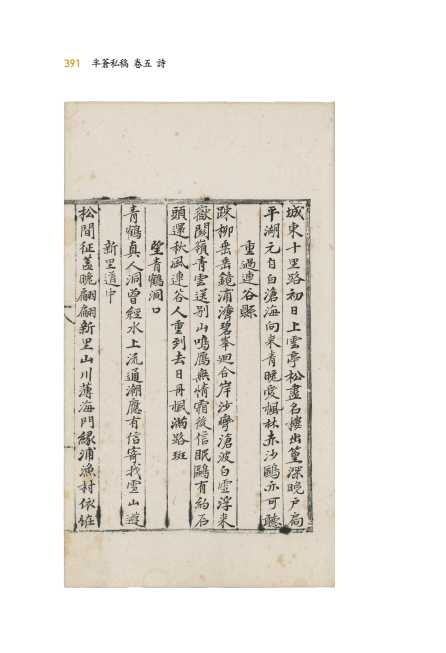 391 半蒼私稿 卷五 詩
城東十里路初日上雲亭松盡名樓出篁深晚戶扃
平湖元自白滄海向來青晚愛楓林赤沙鷗亦可聽
重過連谷縣
疎柳垂垂鏡浦濱碧峯迴合岸沙彎滄波白雲浮來
嶽關嶺青雲送別山鳴鴈無情霜後信眠鷗有約石
頭還秋風連谷人重到去日丹楓滿路斑
望青鶴洞口
青鶴真人洞曾經水上流通潮應有信寄我雪山遊
新里道中
松間征蓋曉翩翩新里山川薄海門緣浦漁村依